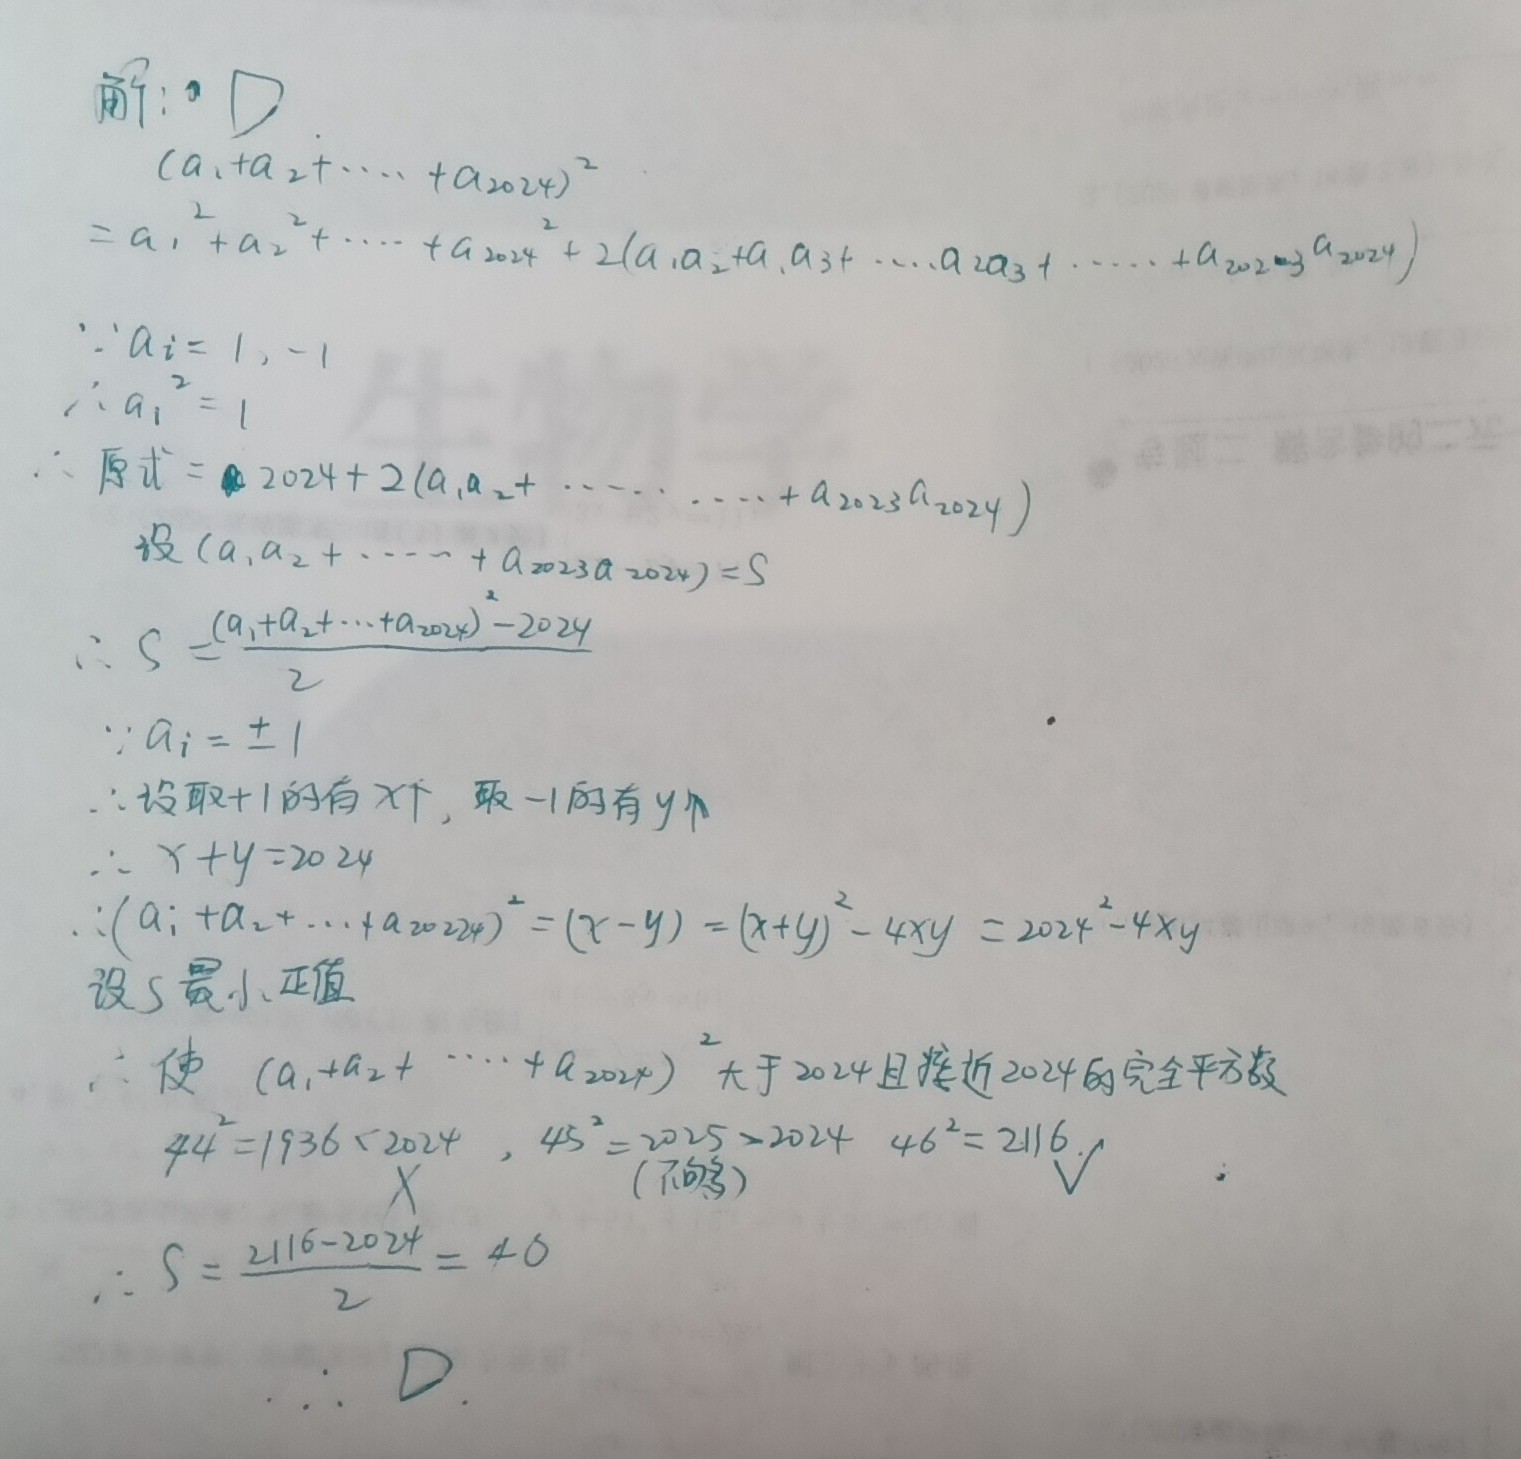 解: D
(a₁+a₂+····+a₂₀₂₄)²
=a₁²+a₂²+····+a₂₀₂₄²+2(a₁a₂+a₁a₃+····a₂a₃+·····+a₂₀₂₃a₂₀₂₄)
∵aᵢ=1,-1
∴a₁²=1
∴原式=2024+2(a₁a₂+·········+a₂₀₂₃a₂₀₂₄)
设(a₁a₂+·····+a₂₀₂₃a₂₀₂₄)=S
∴S=\frac{(a₁+a₂+···+a₂₀₂₄)²-2024}{2}
∵aᵢ=±1
∴设取+1的有x个,取-1的有y个
∴x+y=2024
∴(aᵢ+a₂+···+a₂₀₂₂₄)²=(x-y)=(x+y)²-4xy=2024²-4xy
设S最小正值
∴使(a₁+a₂+····+a₂₀₂₄)²大于2024且接近2024的完全平方数
44²=1936<2024,45²=2025>2024 46²=2116.✓
X (不够)
∴S=\frac{2116-2024}{2}=40
∴D.
生物学